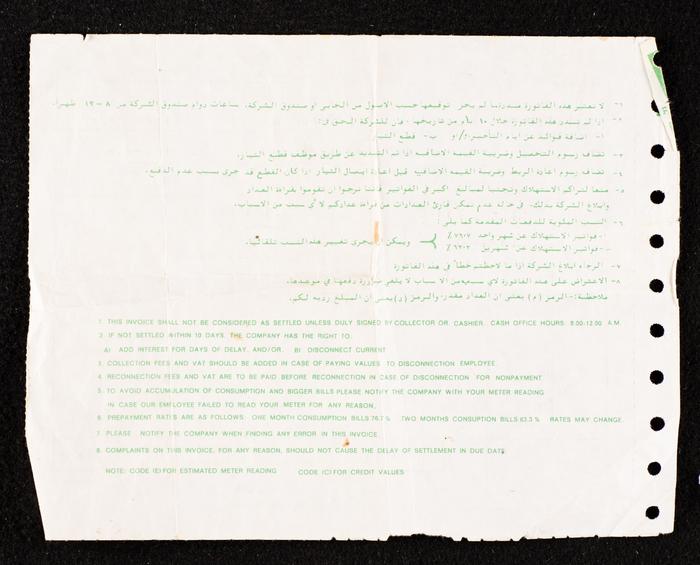 ١- لا تعتبر هذه الفاتورة مسددة ما لم يجر توقيعها حسب الاصول من الجابي او صندوق الشركة، ساعات دوام صندوق الشركة من ٨ - ١٢ ظهرا.
٢- اذا لم تسدد هذه الفاتورة خلال ١٠ أيام من تاريخها، فان للشركة الحق في:
أ- اضافة فوائد عن ايام التأخير و/او ب- قطع التيار
٣- تضاف رسوم التحصيل وضريبة القيمة الاضافية اذا تم التسديد عن طريق موظف قطع التيار.
٤- تضاف رسوم اعادة الربط وضريبة القيمة الاضافية قبل اعادة ايصال التيار اذا كان القطع قد جرى بسبب عدم الدفع.
٥- منعا لتراكم الاستهلاك وتجنبا لمبالغ اكبر في الفواتير فاننا نرجوا ان تقوموا بقراءة العداد
وابلاغ الشركة بذلك، في حالة عدم تمكن قارئ العدادات من قراءة عدادكم لأي سبب من الاسباب.
٦- النسب المئوية للدفعات المقدمة كما يلي:
- فواتير الاستهلاك عن شهر واحد ٧٦,٧ ٪
- فواتير الاستهلاك عن شهرين ٦٣,٣ ٪ ويمكن ان يجري تغيير هذه النسب تلقائيا.
٧- الرجاء ابلاغ الشركة اذا ما لاحظتم خطأ في هذه الفاتورة
٨- الاعتراض على هذه الفاتورة لاي سبب من الاسباب لا يلغي ضرورة دفعها في موعدها.
ملاحظة:- الرمز (م) يعني ان العداد مقدر، والرمز (د) يعني ان المبلغ رديه لكم.
1. THIS INVOICE SHALL NOT BE CONSIDERED AS SETTLED UNLESS DULY SIGNED BY COLLECTOR OR CASHIER. CASH OFFICE HOURS: 8:00-12:00 A.M.
2. IF NOT SETTLED WITHIN 10 DAYS, THE COMPANY HAS THE RIGHT TO.
A) ADD INTEREST FOR DAYS OF DELAY, AND/OR. B) DISCONNECT CURRENT
3. COLLECTION FEES AND VAT SHOULD BE ADDED IN CASE OF PAYING VALUES TO DISCONNECTION EMPLOYEE.
4. RECONNECTION FEES AND VAT ARE TO BE PAID BEFORE RECONNECTION IN CASE OF DISCONNECTION FOR NONPAYMENT
5. TO AVOID ACCUMULATION OF CONSUMPTION AND BIGGER BILLS PLEASE NOTIFY THE COMPANY WITH YOUR METER READING
IN CASE OUR EMPLOYEE FAILED TO READ YOUR METER FOR ANY REASON.
6. PREPAYMENT RATES ARE AS FOLLOWS: ONE MONTH CONSUMPTION BILLS 76.7 % TWO MONTHS CONSUPTION BILLS 63.3 % RATES MAY CHANGE.
7. PLEASE NOTIFY THE COMPANY WHEN FINDING ANY ERROR IN THIS INVOICE.
8. COMPLAINTS ON THIS INVOICE, FOR ANY REASON, SHOULD NOT CAUSE THE DELAY OF SETTLEMENT IN DUE DATE
NOTE: CODE (E) FOR ESTIMATED METER READING CODE (C) FOR CREDIT VALUES